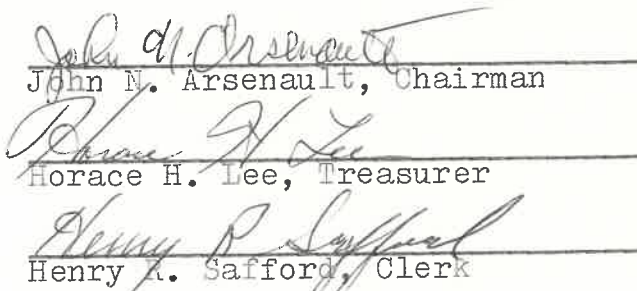 John N. Arsenault
John N. Arsenault, Chairman
Horace H Lee
Horace H. Lee, Treasurer
Henry R Safford
Henry R. Safford, Clerk